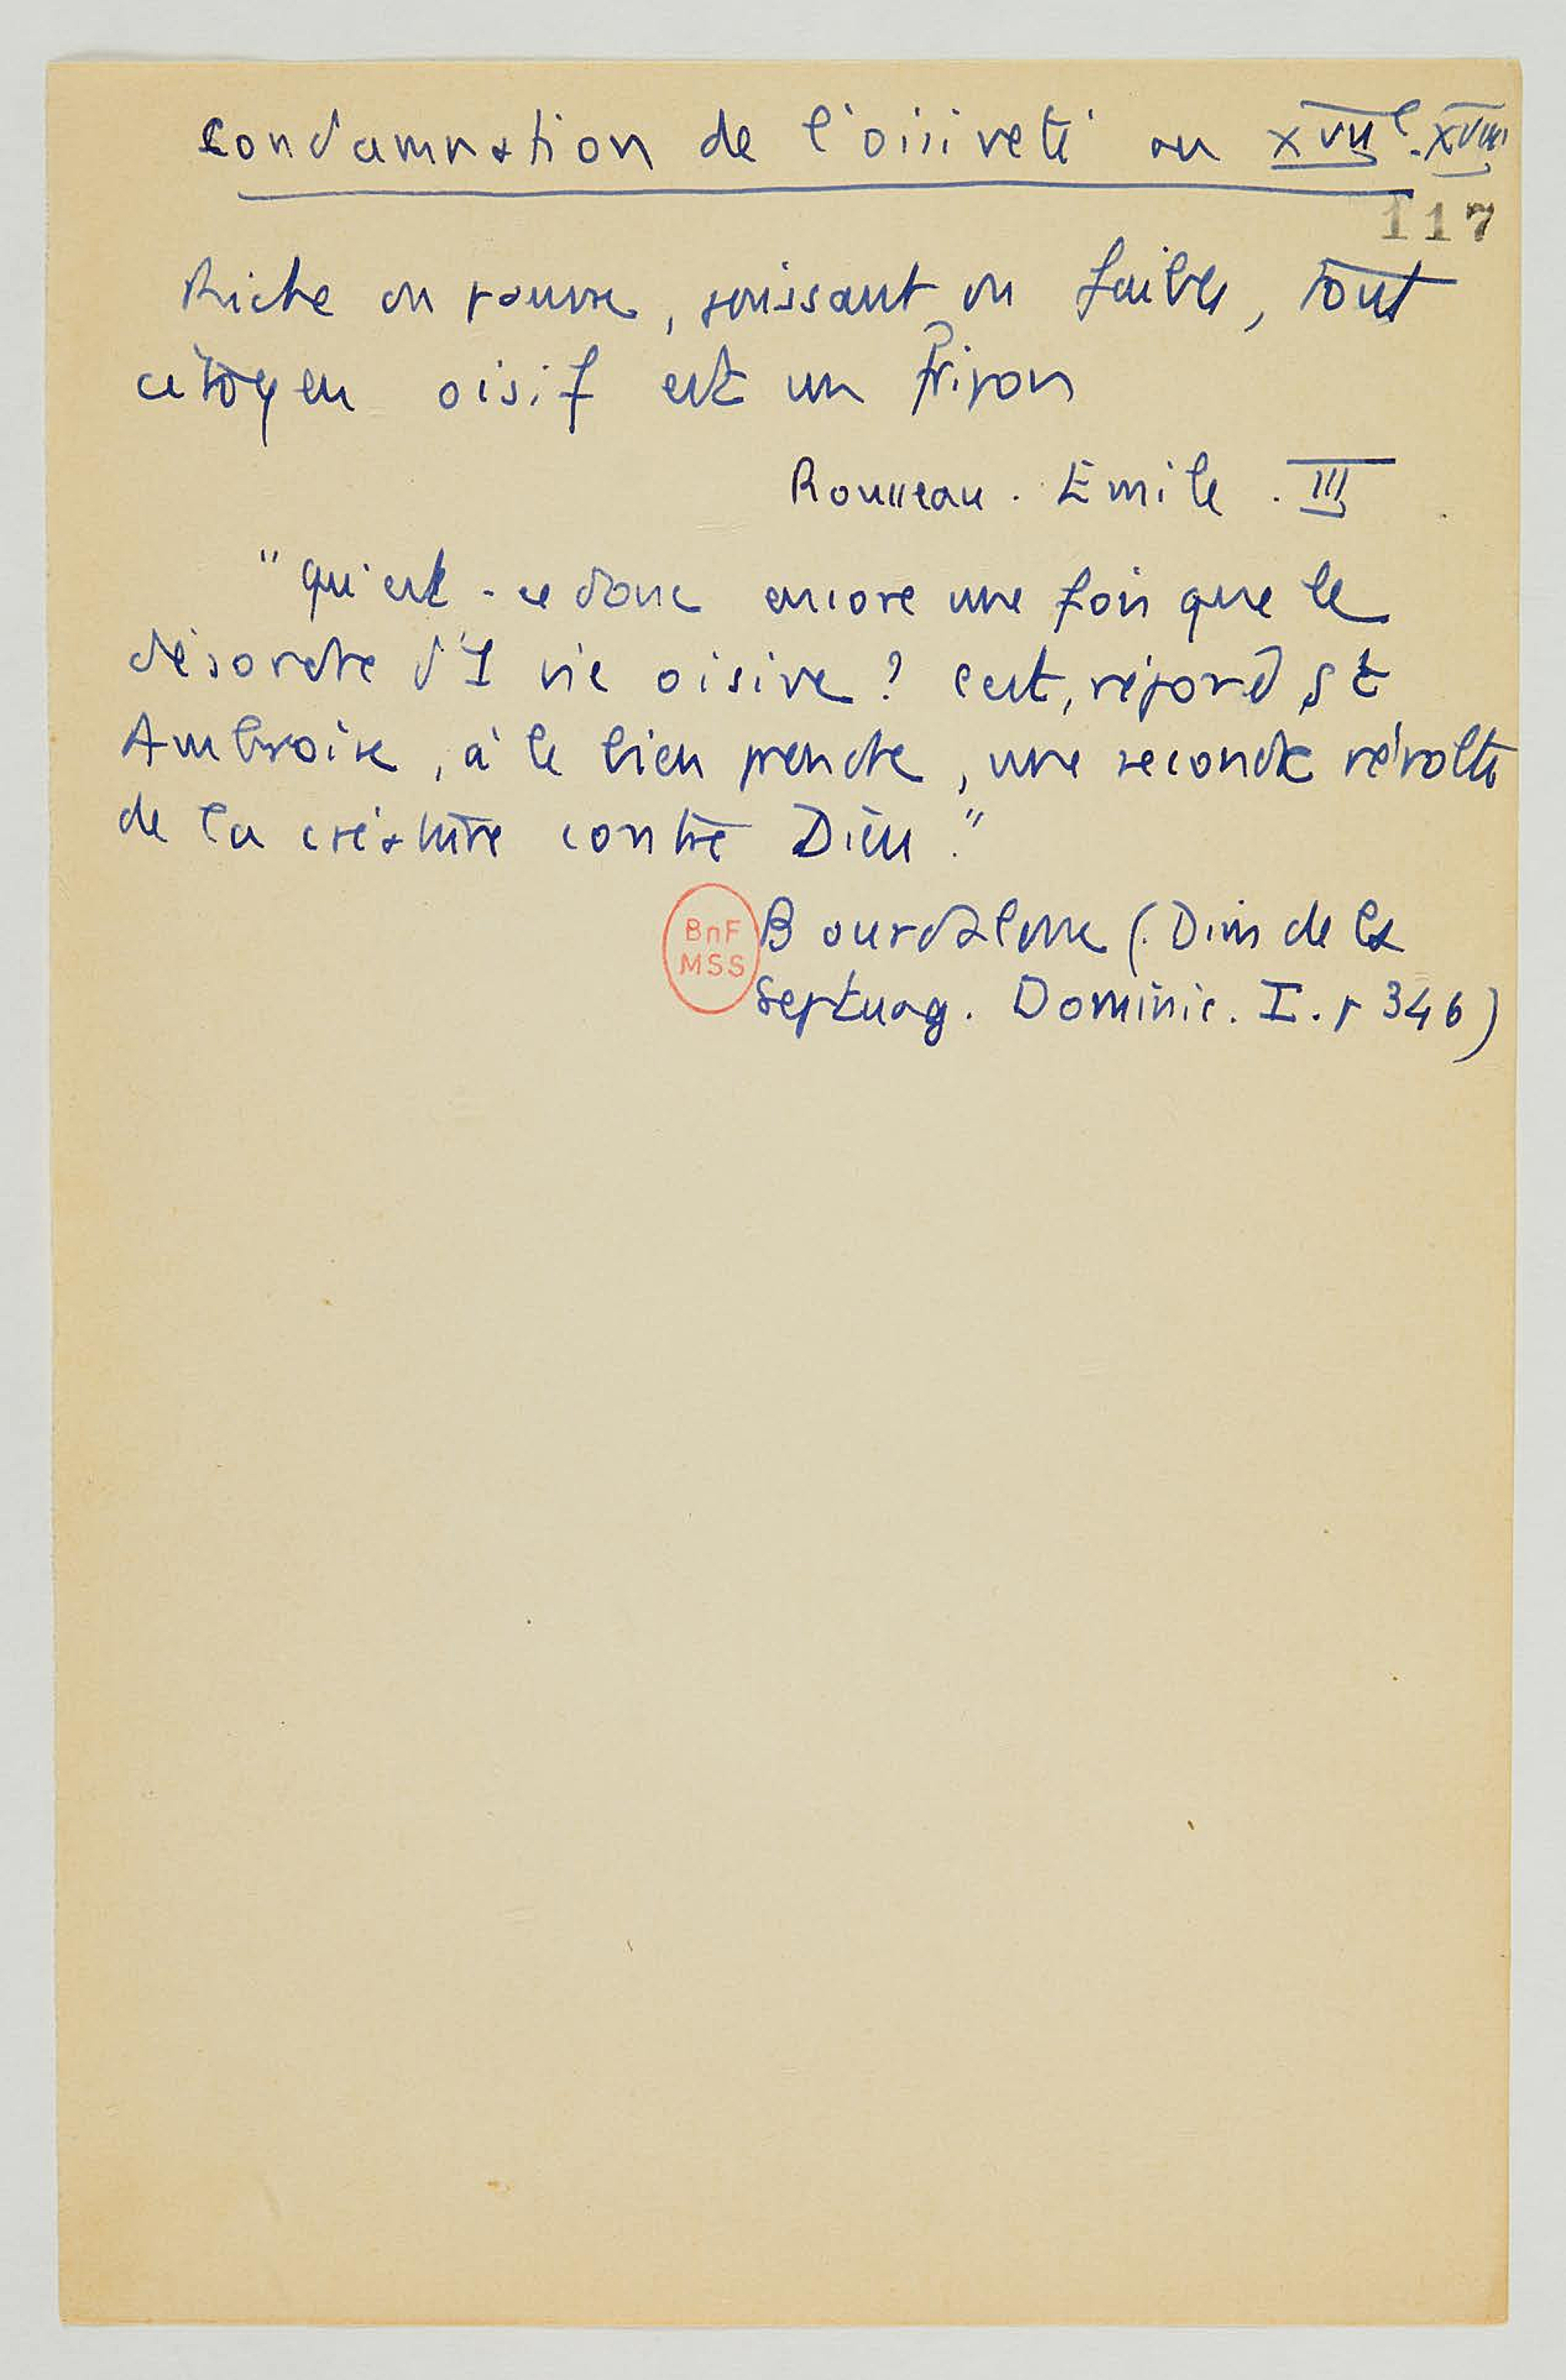 Condamnation de l'oisiveté au XVIIe-XVIII
117
Riche ou pauvre, puissant ou faible, tout
citoyen oisif est un fripon
Rousseau. Emile. III
"qu'est-ce donc encore une fois que le
désordre d'1 vie oisive ? c'est, répond St
Ambroise, à le bien prendre, une seconde révolte
de la créature contre Dieu."
BnF
MSS
Bourdaloue (Dim de la
Septuag. Dominic. I. p 346)